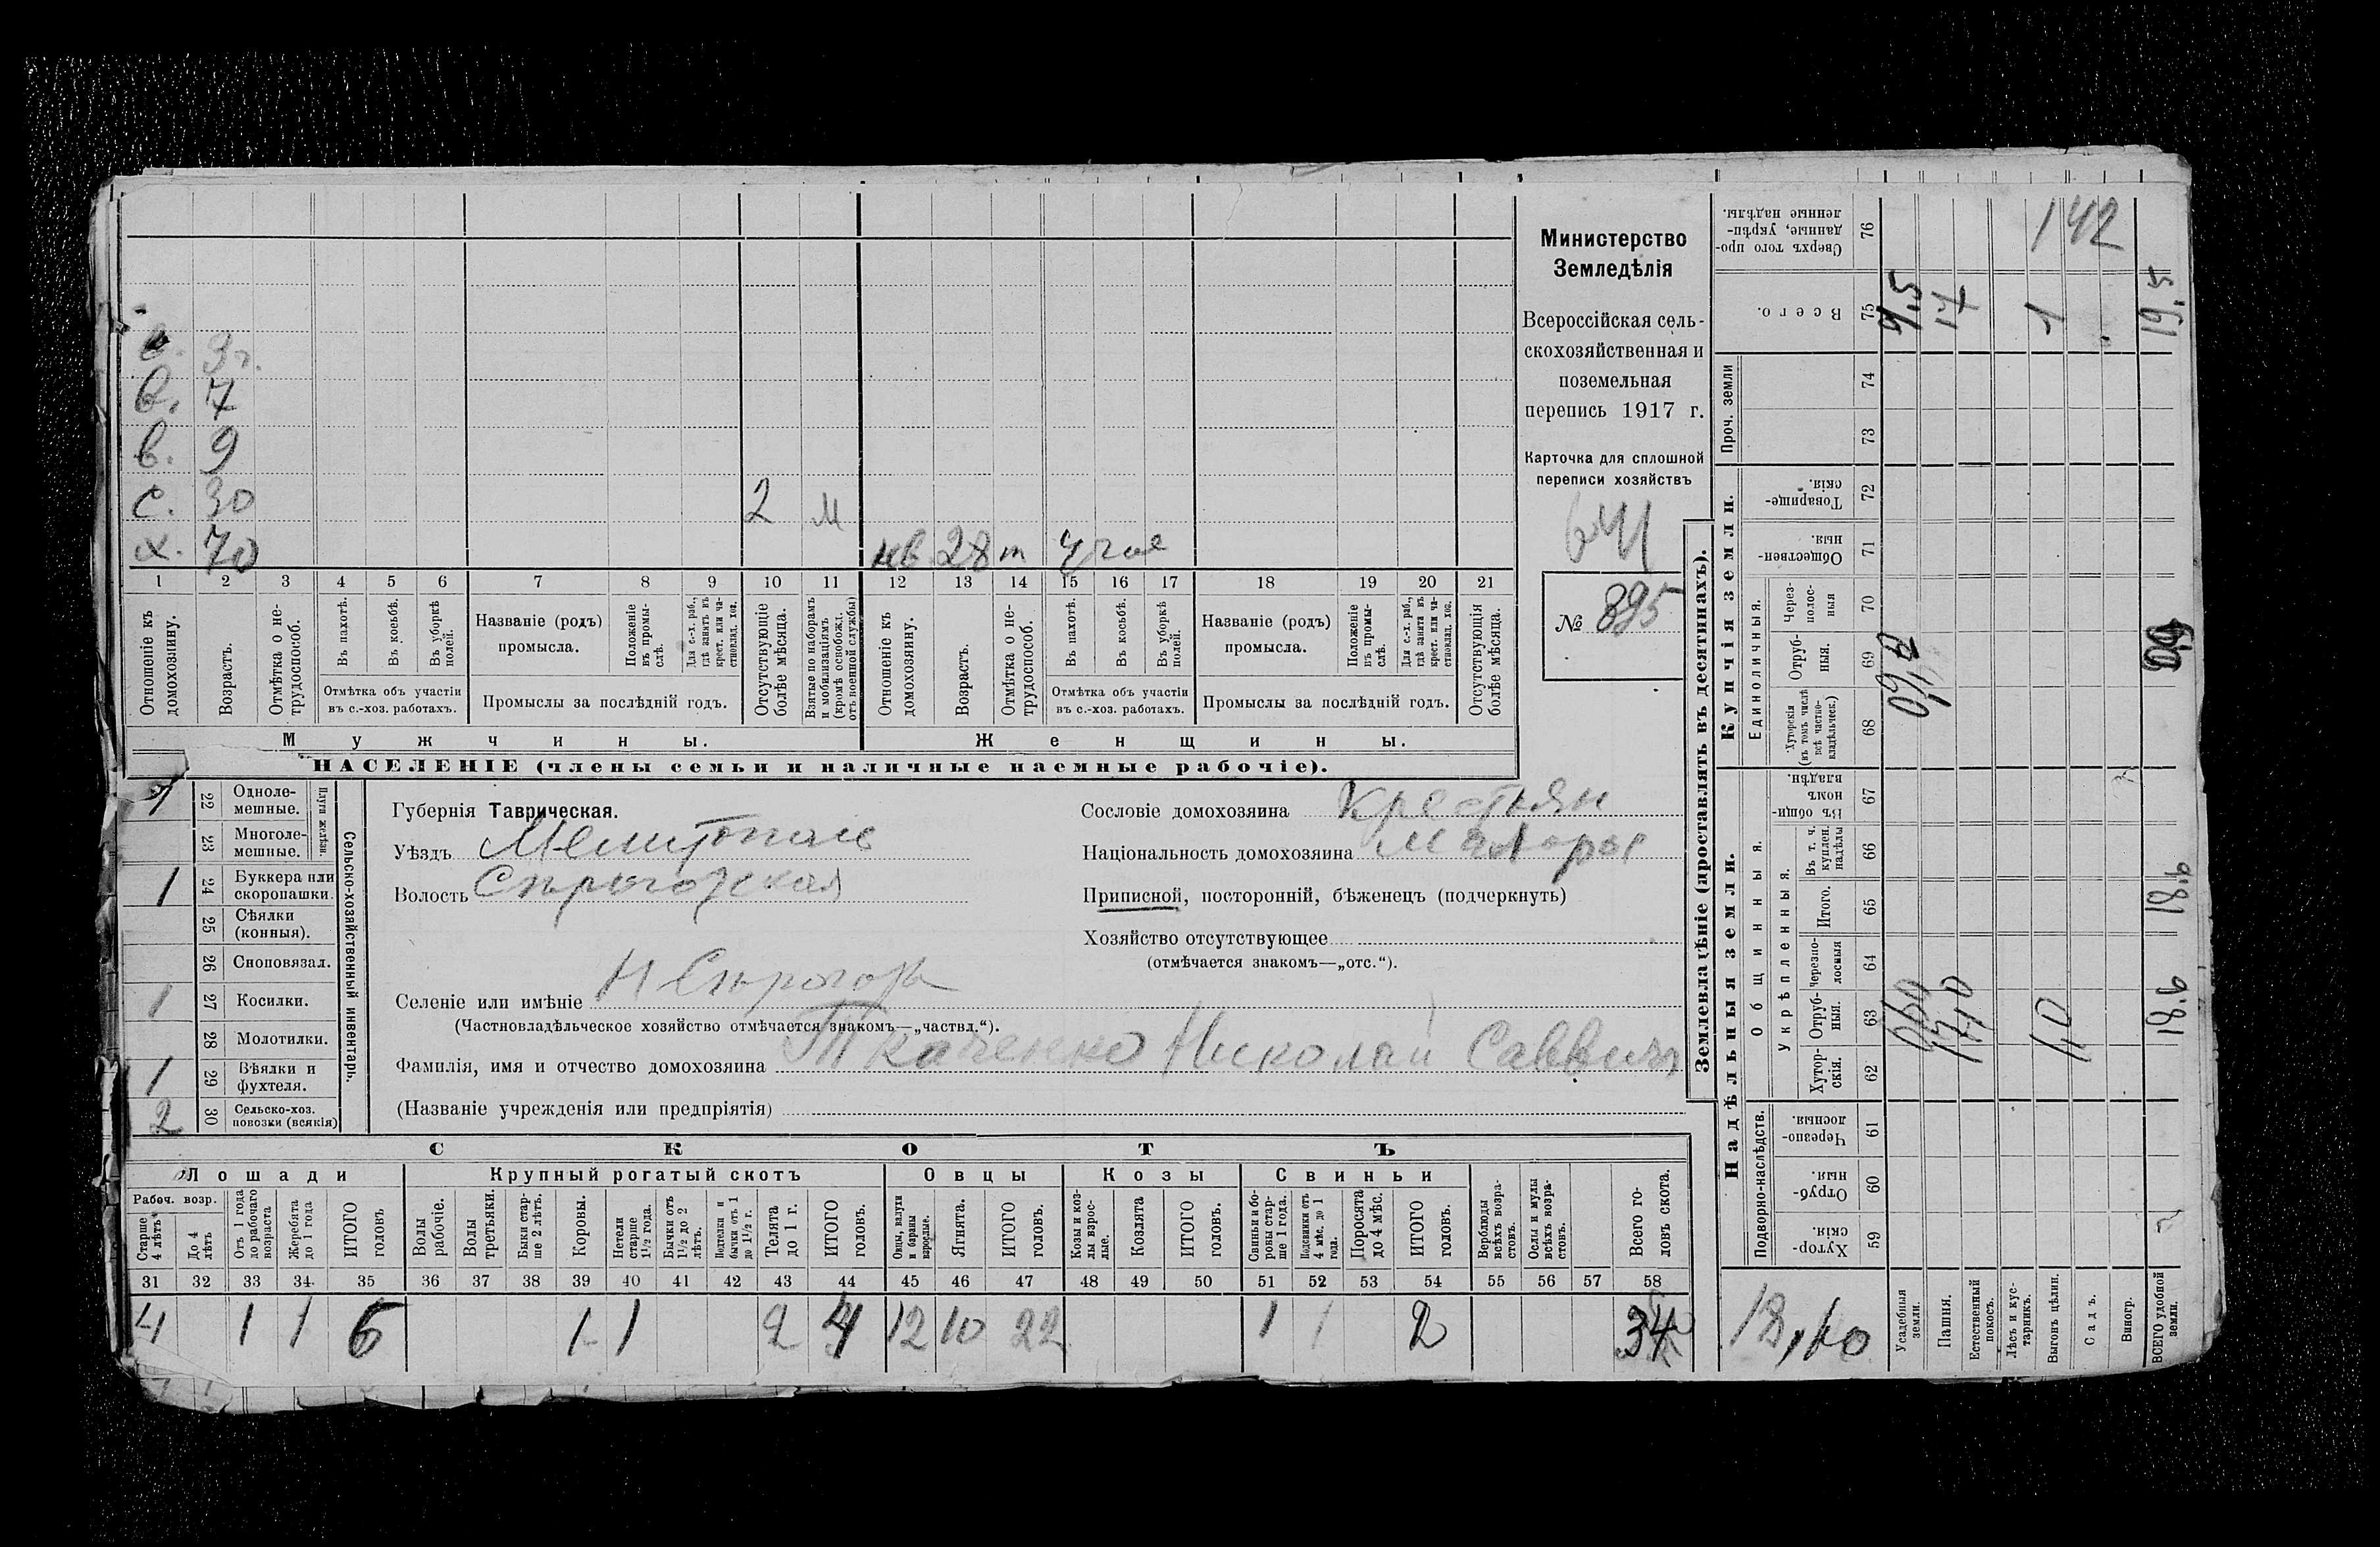 в. 3 г.
в. 7
в. 9
с. 30 2 м
х. 70 нв. 28 т
1 2 3 4 5 6 7 8 9 10 11 12 13 14 15 16 17 18 19 20 21
Отношеніе къ домохозяину.
Возрастъ.
Отмѣтка о не-
трудоспособ.
Въ пахотѣ.
Въ косьбѣ.
Въ уборкѣ полей.
Отмѣтка объ участіи
въ с.-хоз. работахъ.
Названіе (родъ)
промысла.
Положеніе въ промы-
слѣ.
Для с.-х. раб., гдѣ занятъ въ крест. или ча-
стновлад. хоз.
Промыслы за послѣдній годъ.
Отсутствующіе болѣе мѣсяца.
Взятые по наборамъ и мобилизаціямъ (кромѣ освобожд. отъ военной службы)
Отношеніе къ домохозяину.
Возрастъ.
Отмѣтка о не-
трудоспособ.
Въ пахотѣ.
Въ косьбѣ.
Въ уборкѣ полей.
Отмѣтка объ участіи
въ с.-хоз. работахъ.
Названіе (родъ)
промысла.
Положеніе въ промы-
слѣ.
Для с.-х. раб., гдѣ занята въ крест. или ча-
стновлад. хоз.
Промыслы за послѣдній годъ.
Отсутствующія болѣе мѣсяца.
Мужчины.
Женщины.
НАСЕЛЕНІЕ (члены семьи и наличные наемные рабочіе).
Министерство
Земледѣлія
Всероссійская сель-
скохозяйственная и
поземельная
перепись 1917 г.
Карточка для сплошной
переписи хозяйствъ
№ 895
1 22 Одноле-
мешные.
23 Многоле-
мешные.
Плуги желѣзн.
1 24 Буккера или
скоропашки.
25 Сѣялки
(конныя).
26 Сноповязал.
1 27 Косилки.
28 Молотилки.
1 29 Вѣялки и
фухтеля.
2 30 Сельско-хоз.
повозки (всякія)
Сельско-хозяйственный инвентарь.
Губернія Таврическая.
Уѣздъ Мелитополь
Волость Сѣрогозская
Селеніе или имѣніе Н Сѣрогозы
(Частновладѣльческое хозяйство отмѣчается знакомъ—„частвл.“).
Фамилія, имя и отчество домохозяина Ткаченко Николай Саввичъ
(Названіе учрежденія или предпріятія)
Сословіе домохозяина Крестьян
Національность домохозяина малорос
Приписной, посторонній, бѣженецъ (подчеркнуть)
Хозяйство отсутствующее
(отмѣчается знакомъ—„отс.“).
СКОТЪ
Лошади
Крупный рогатый скотъ
Овцы
Козы
Свиньи
Рабоч. возр.
Старше 4 лѣтъ
До 4 лѣтъ
Отъ 1 года до рабочаго возраста
Жеребята до 1 года
ИТОГО головъ
Волы рабочіе.
Волы третьяки.
Быки стар-
ше 2 лѣтъ.
Коровы.
Нетели старше 1½ года.
Бычки отъ 1½ до 2 лѣтъ.
Подтелки и бычки отъ 1 до 1½ г.
Телята до 1 г.
ИТОГО головъ.
Овцы, валухи и бараны взрослые.
Ягнята.
ИТОГО головъ.
Козы и коз-
лы взрос-
лые.
Козлята
ИТОГО головъ.
Свиньи и бо-
ровы стар-
ше 1 года.
Подсвинки отъ 4 мѣс. до 1 года.
Поросята до 4 мѣс.
ИТОГО головъ.
Верблюды всѣхъ возра-
стовъ.
Ослы и мулы всѣхъ возра-
стовъ.
Всего го-
ловъ скота.
31 32 33 34 35 36 37 38 39 40 41 42 43 44 45 46 47 48 49 50 51 52 53 54 55 56 57 58
4 1 1 6 1 1 2 4 12 10 22 1 1 2 34
Землевладѣніе (проставлять въ десятинахъ).
Купчія земли.
Надѣльныя земли.
Сверхъ того про-
данные, укрѣп-
ленные надѣлы.
76 142
Всего.
75 1,5 17 1 19,5
Проч. земли
74
73
Товарище-
скія.
72
Обществен-
ныя.
71
Единоличныя.
Через-
полос-
ныя
70
Отруб-
ныя.
69
Хуторскія (въ томъ числѣ всѣ частно-
владѣльческ.)
68
Общинныя.
Въ общин-
номъ
владѣн.
67
Укрѣпленныя.
Въ т. ч. куплен. надѣлы
66
Итого.
65 18,6
Черезпо-
лосныя
64
Отруб-
ныя.
63 0,60 17,0 1,0 18,6
Хутор-
скія.
62
Подворно-наслѣдств.
Черезпо-
лосныя.
61
Отруб-
ныя.
60
Хутор-
скія.
59
Усадебныя земли.
Пашня.
Естественный покосъ.
Лѣсъ и кус-
тарникъ.
Выгонъ цѣлин.
Садъ.
Виногр.
ВСЕГО удобной земли.